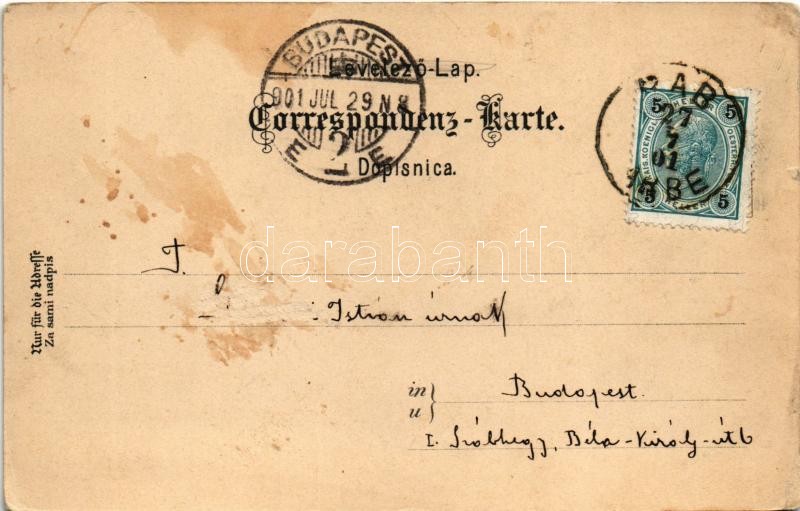 BUDAPEST
901 JUL 29 N 8
Levelező-Lap.
Correspondenz-Karte.
Dopisnica.
ARBE
27
7
01
ARBE
5 5
5 5
darabanth
Nur für die Adresse
Za sami nadpis
T.
István úrnak
in
u
Budapest.
I. Svábhegy, Béla-Király-út 6